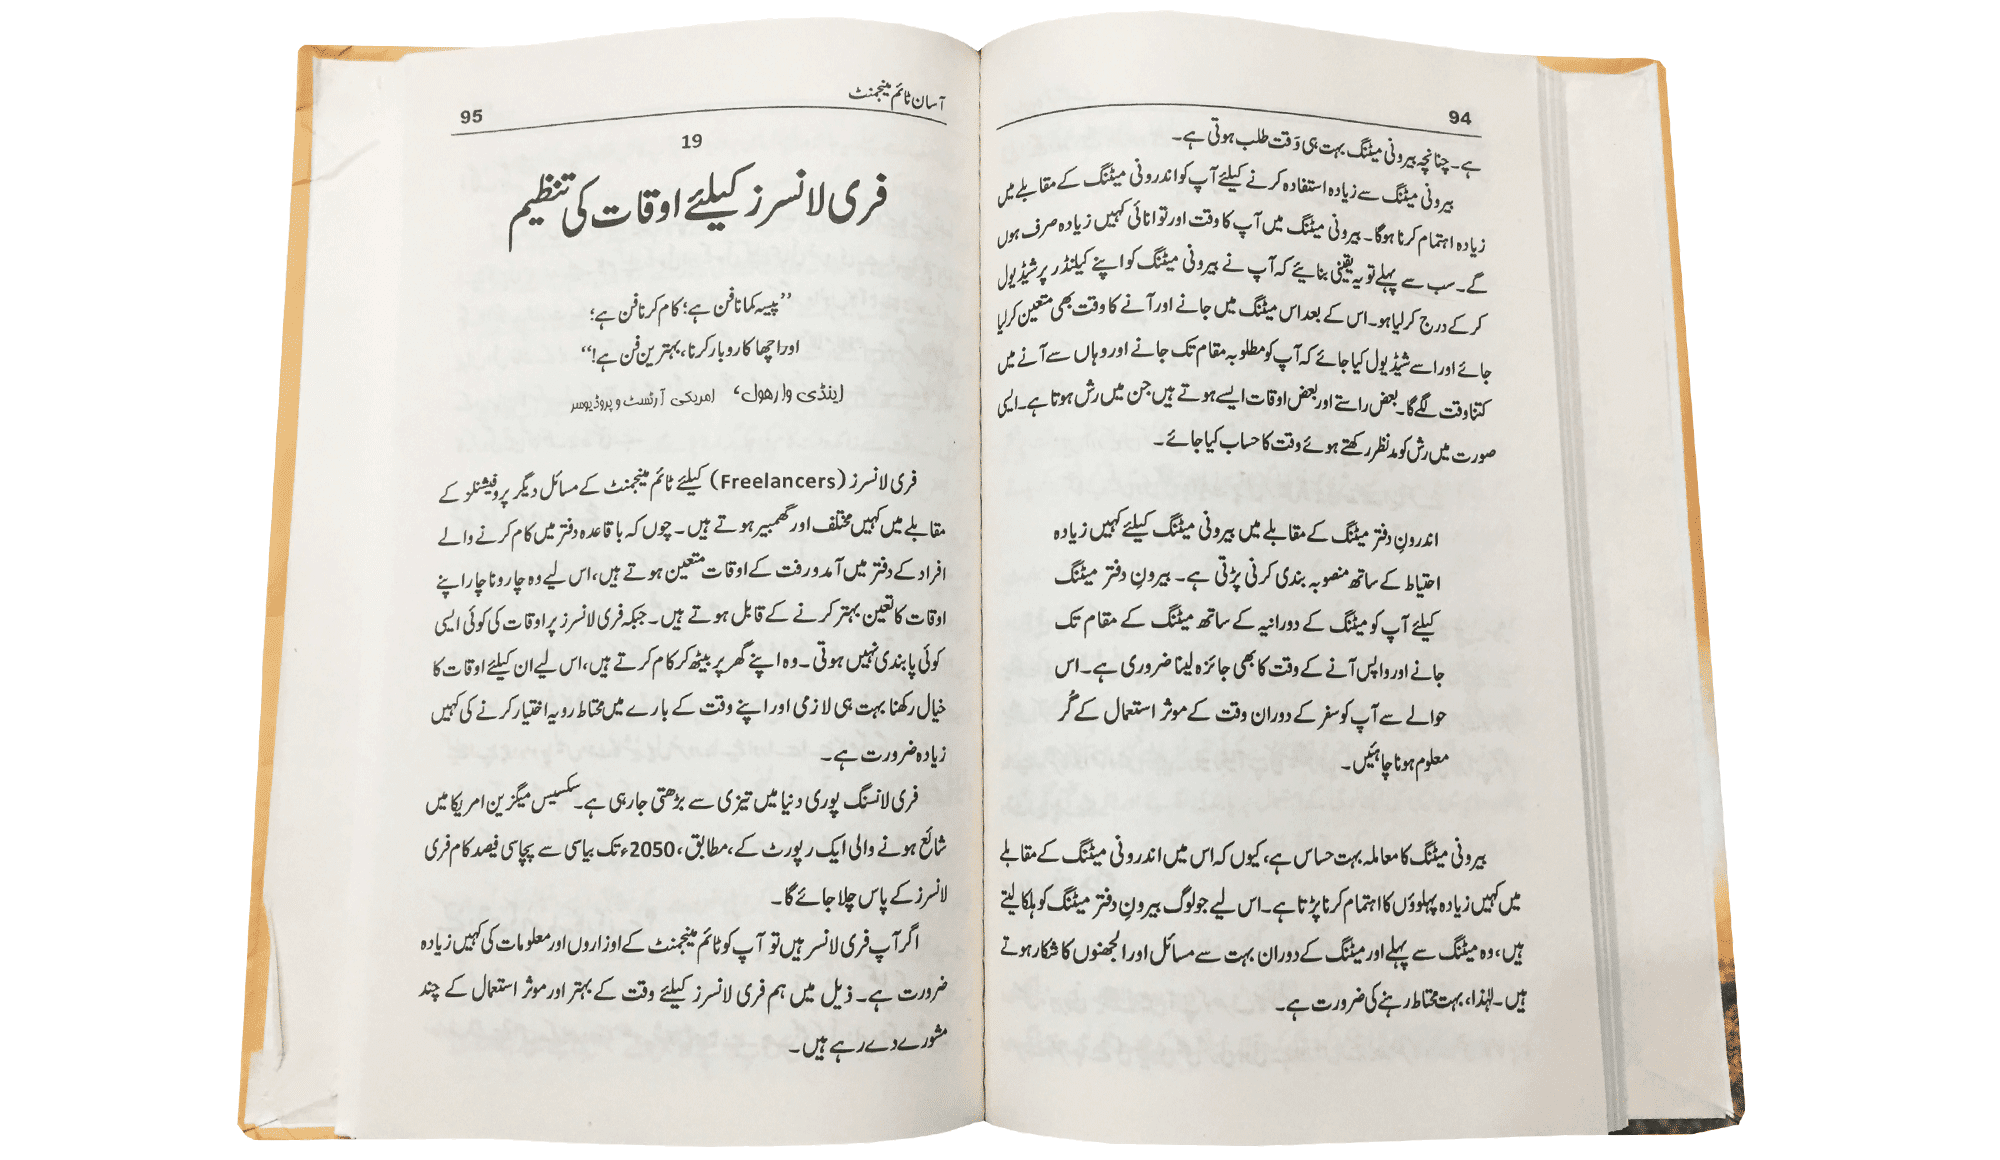 94
ہے۔ چنانچہ بیرونی میٹنگ بہت ہی وَقت طلب ہوتی ہے۔
بیرونی میٹنگ سے زیادہ استفادہ کرنے کیلئے آپ کو اندرونی میٹنگ کے مقابلے میں
زیادہ اہتمام کرنا ہوگا۔ بیرونی میٹنگ میں آپ کا وقت اور توانائی کہیں زیادہ صرف ہوں
گے۔ سب سے پہلے تو یہ یقینی بنائیے کہ آپ نے بیرونی میٹنگ کو اپنے کیلنڈر پر شیڈیول
کر کے درج کر لیا ہو۔ اس کے بعد اس میٹنگ میں جانے اور آنے کا وقت بھی متعین کر لیا
جائے اور اسے شیڈیول کیا جائے کہ آپ کو مطلوبہ مقام تک جانے اور وہاں سے آنے میں
کتنا وقت لگے گا۔ بعض راستے اور بعض اوقات ایسے ہوتے ہیں جن میں رش ہوتا ہے۔ ایسی
صورت میں رش کو مدنظر رکھتے ہوئے وقت کا حساب کیا جائے۔
اندرونِ دفتر میٹنگ کے مقابلے میں بیرونی میٹنگ کیلئے کہیں زیادہ
احتیاط کے ساتھ منصوبہ بندی کرنی پڑتی ہے۔ بیرونِ دفتر میٹنگ
کیلئے آپ کو میٹنگ کے دورانیہ کے ساتھ میٹنگ کے مقام تک
جانے اور واپس آنے کے وقت کا بھی جائزہ لینا ضروری ہے۔ اس
حوالے سے آپ کو سفر کے دوران وقت کے موثر استعمال کے گُر
معلوم ہونا چاہئیں۔
بیرونی میٹنگ کا معاملہ بہت حساس ہے، کیوں کہ اس میں اندرونی میٹنگ کے مقابلے
میں کہیں زیادہ پہلوؤں کا اہتمام کرنا پڑتا ہے۔ اس لیے جو لوگ بیرونِ دفتر میٹنگ کو ہلکا لیتے
ہیں، وہ میٹنگ سے پہلے اور میٹنگ کے دوران بہت سے مسائل اور الجھنوں کا شکار ہوتے
ہیں۔ لہٰذا، بہت محتاط رہنے کی ضرورت ہے۔
آسان ٹائم مینجمنٹ
95
19
فری لانسرز کیلئے اوقات کی تنظیم
”پیسہ کمانا فن ہے؛ کام کرنا فن ہے؛
اور اچھا کاروبار کرنا، بہترین فن ہے!“
اینڈی وارھول، امریکی آرٹسٹ و پروڈیوسر
فری لانسرز (Freelancers) کیلئے ٹائم مینجمنٹ کے مسائل دیگر پروفیشنلز کے
مقابلے میں کہیں مختلف اور گھمبیر ہوتے ہیں۔ چوں کہ باقاعدہ دفتر میں کام کرنے والے
افراد کے دفتر میں آمدورفت کے اوقات متعین ہوتے ہیں، اس لیے وہ چار و ناچار اپنے
اوقات کا تعین بہتر کرنے کے قابل ہوتے ہیں۔ جبکہ فری لانسرز پر اوقات کی کوئی ایسی
کوئی پابندی نہیں ہوتی۔ وہ اپنے گھر پر بیٹھ کر کام کرتے ہیں، اس لیے ان کیلئے اوقات کا
خیال رکھنا بہت ہی لازمی اور اپنے وقت کے بارے میں محتاط رویہ اختیار کرنے کی کہیں
زیادہ ضرورت ہے۔
فری لانسنگ پوری دنیا میں تیزی سے بڑھتی جا رہی ہے۔ سکسیس میگزین امریکا میں
شائع ہونے والی ایک رپورٹ کے، مطابق، 2050ء تک بیاسی سے پچاسی فیصد کام فری
لانسرز کے پاس چلا جائے گا۔
اگر آپ فری لانسر ہیں تو آپ کو ٹائم مینجمنٹ کے اوزاروں اور معلومات کی کہیں زیادہ
ضرورت ہے۔ ذیل میں ہم فری لانسرز کیلئے وقت کے بہتر اور موثر استعمال کے چند
مشورے دے رہے ہیں۔